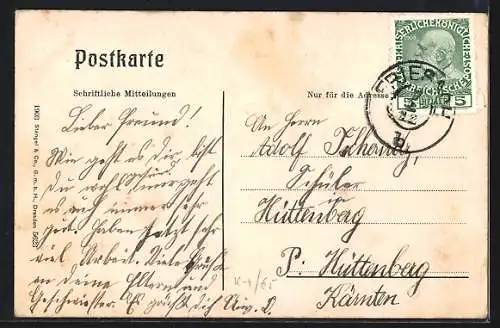 Postkarte
Schriftliche Mitteilungen
Nur für die Adresse
KAISERLICHE KÖNIGLICHE
ÖSTERREICHISCHE POST
5 HELLER 5
1903 Stengel & Co., G. m. b. H., Dresden
Lieber Freund!
Wie geht es dir, bist
du wohl
auch immer sehr
gut. Haben jetzt sehr
viel Arbeit. Viele Grüße
an deine Eltern und
Geschwister. Es grüßt dich
An Herrn
Adolf
Schüler
in
Hüttenberg
P: Hüttenberg
Kärnten